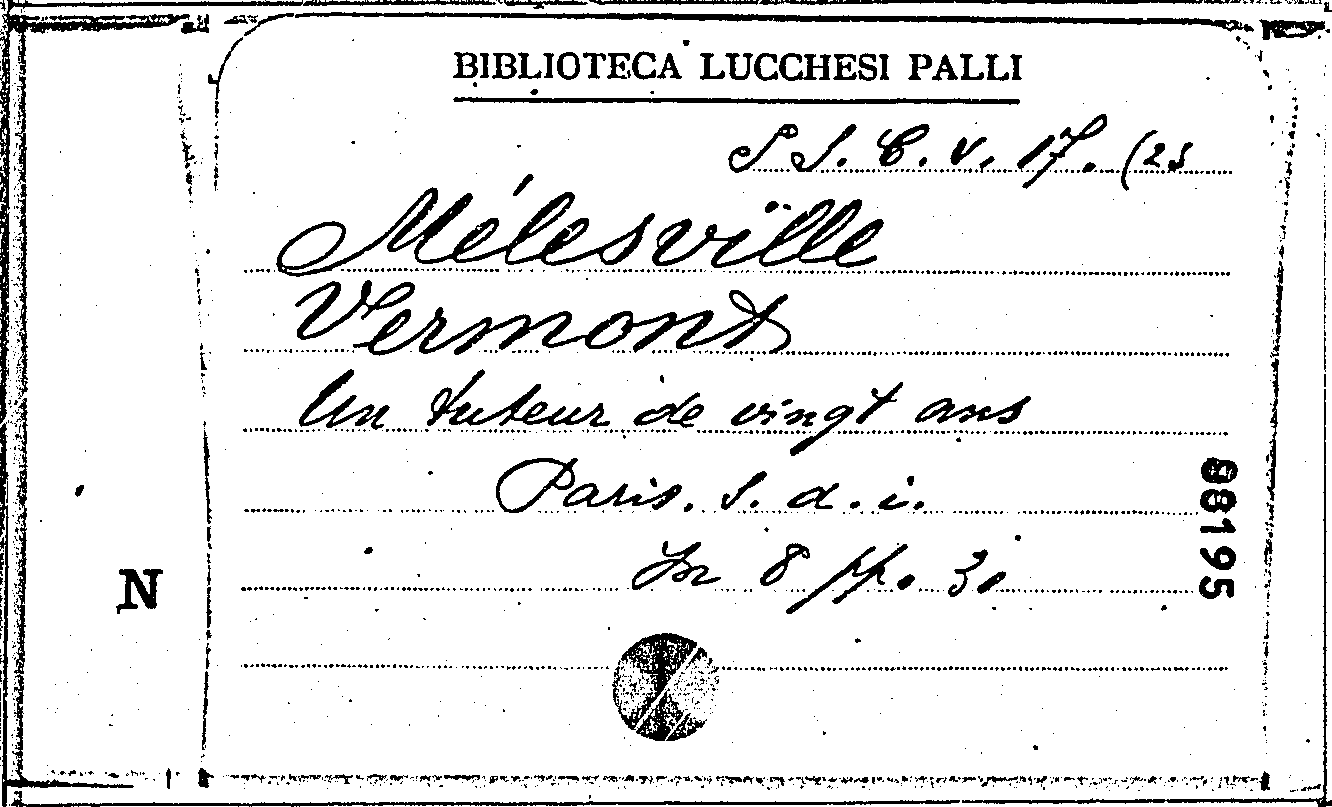 BIBLIOTECA LUCCHESI PALLI
S. S. C. V. 17. (23
Mélesville
Vermont
Un tuteur de vingt ans
Paris. s. d. i.
In 8 pp. 30
88195
N